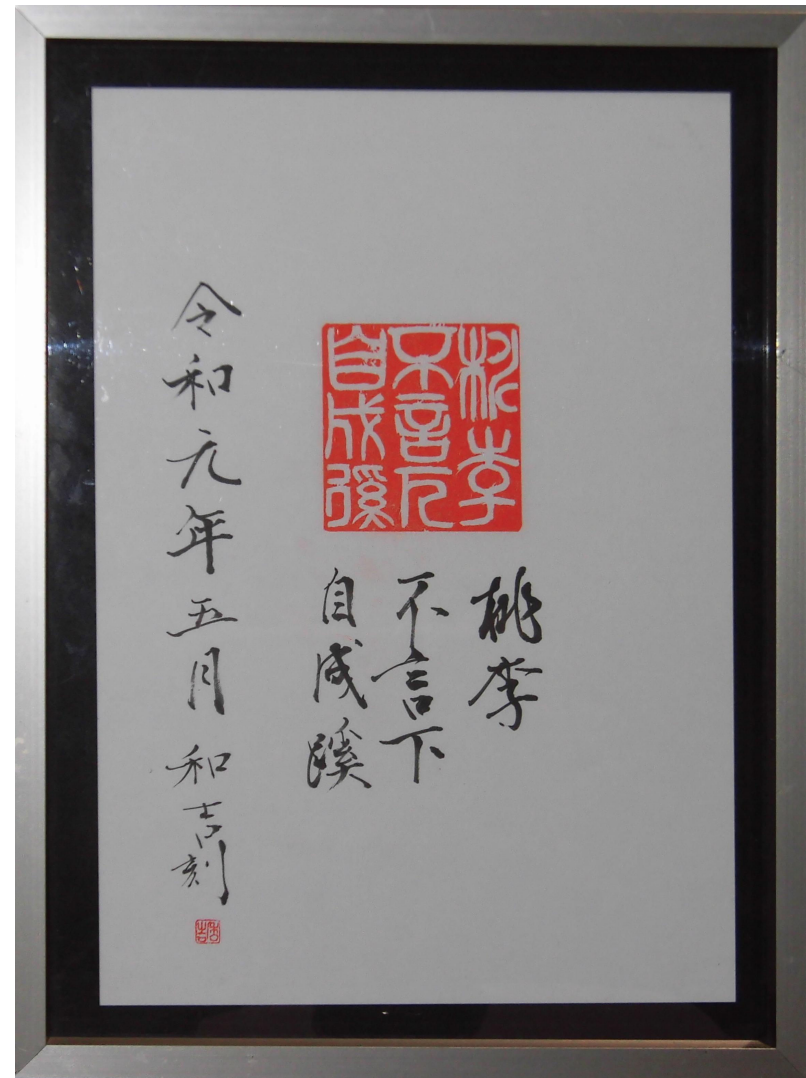 桃李
不言下
自成蹊
桃李
不言下
自成蹊
令和元年五月 和吉刻
和吉